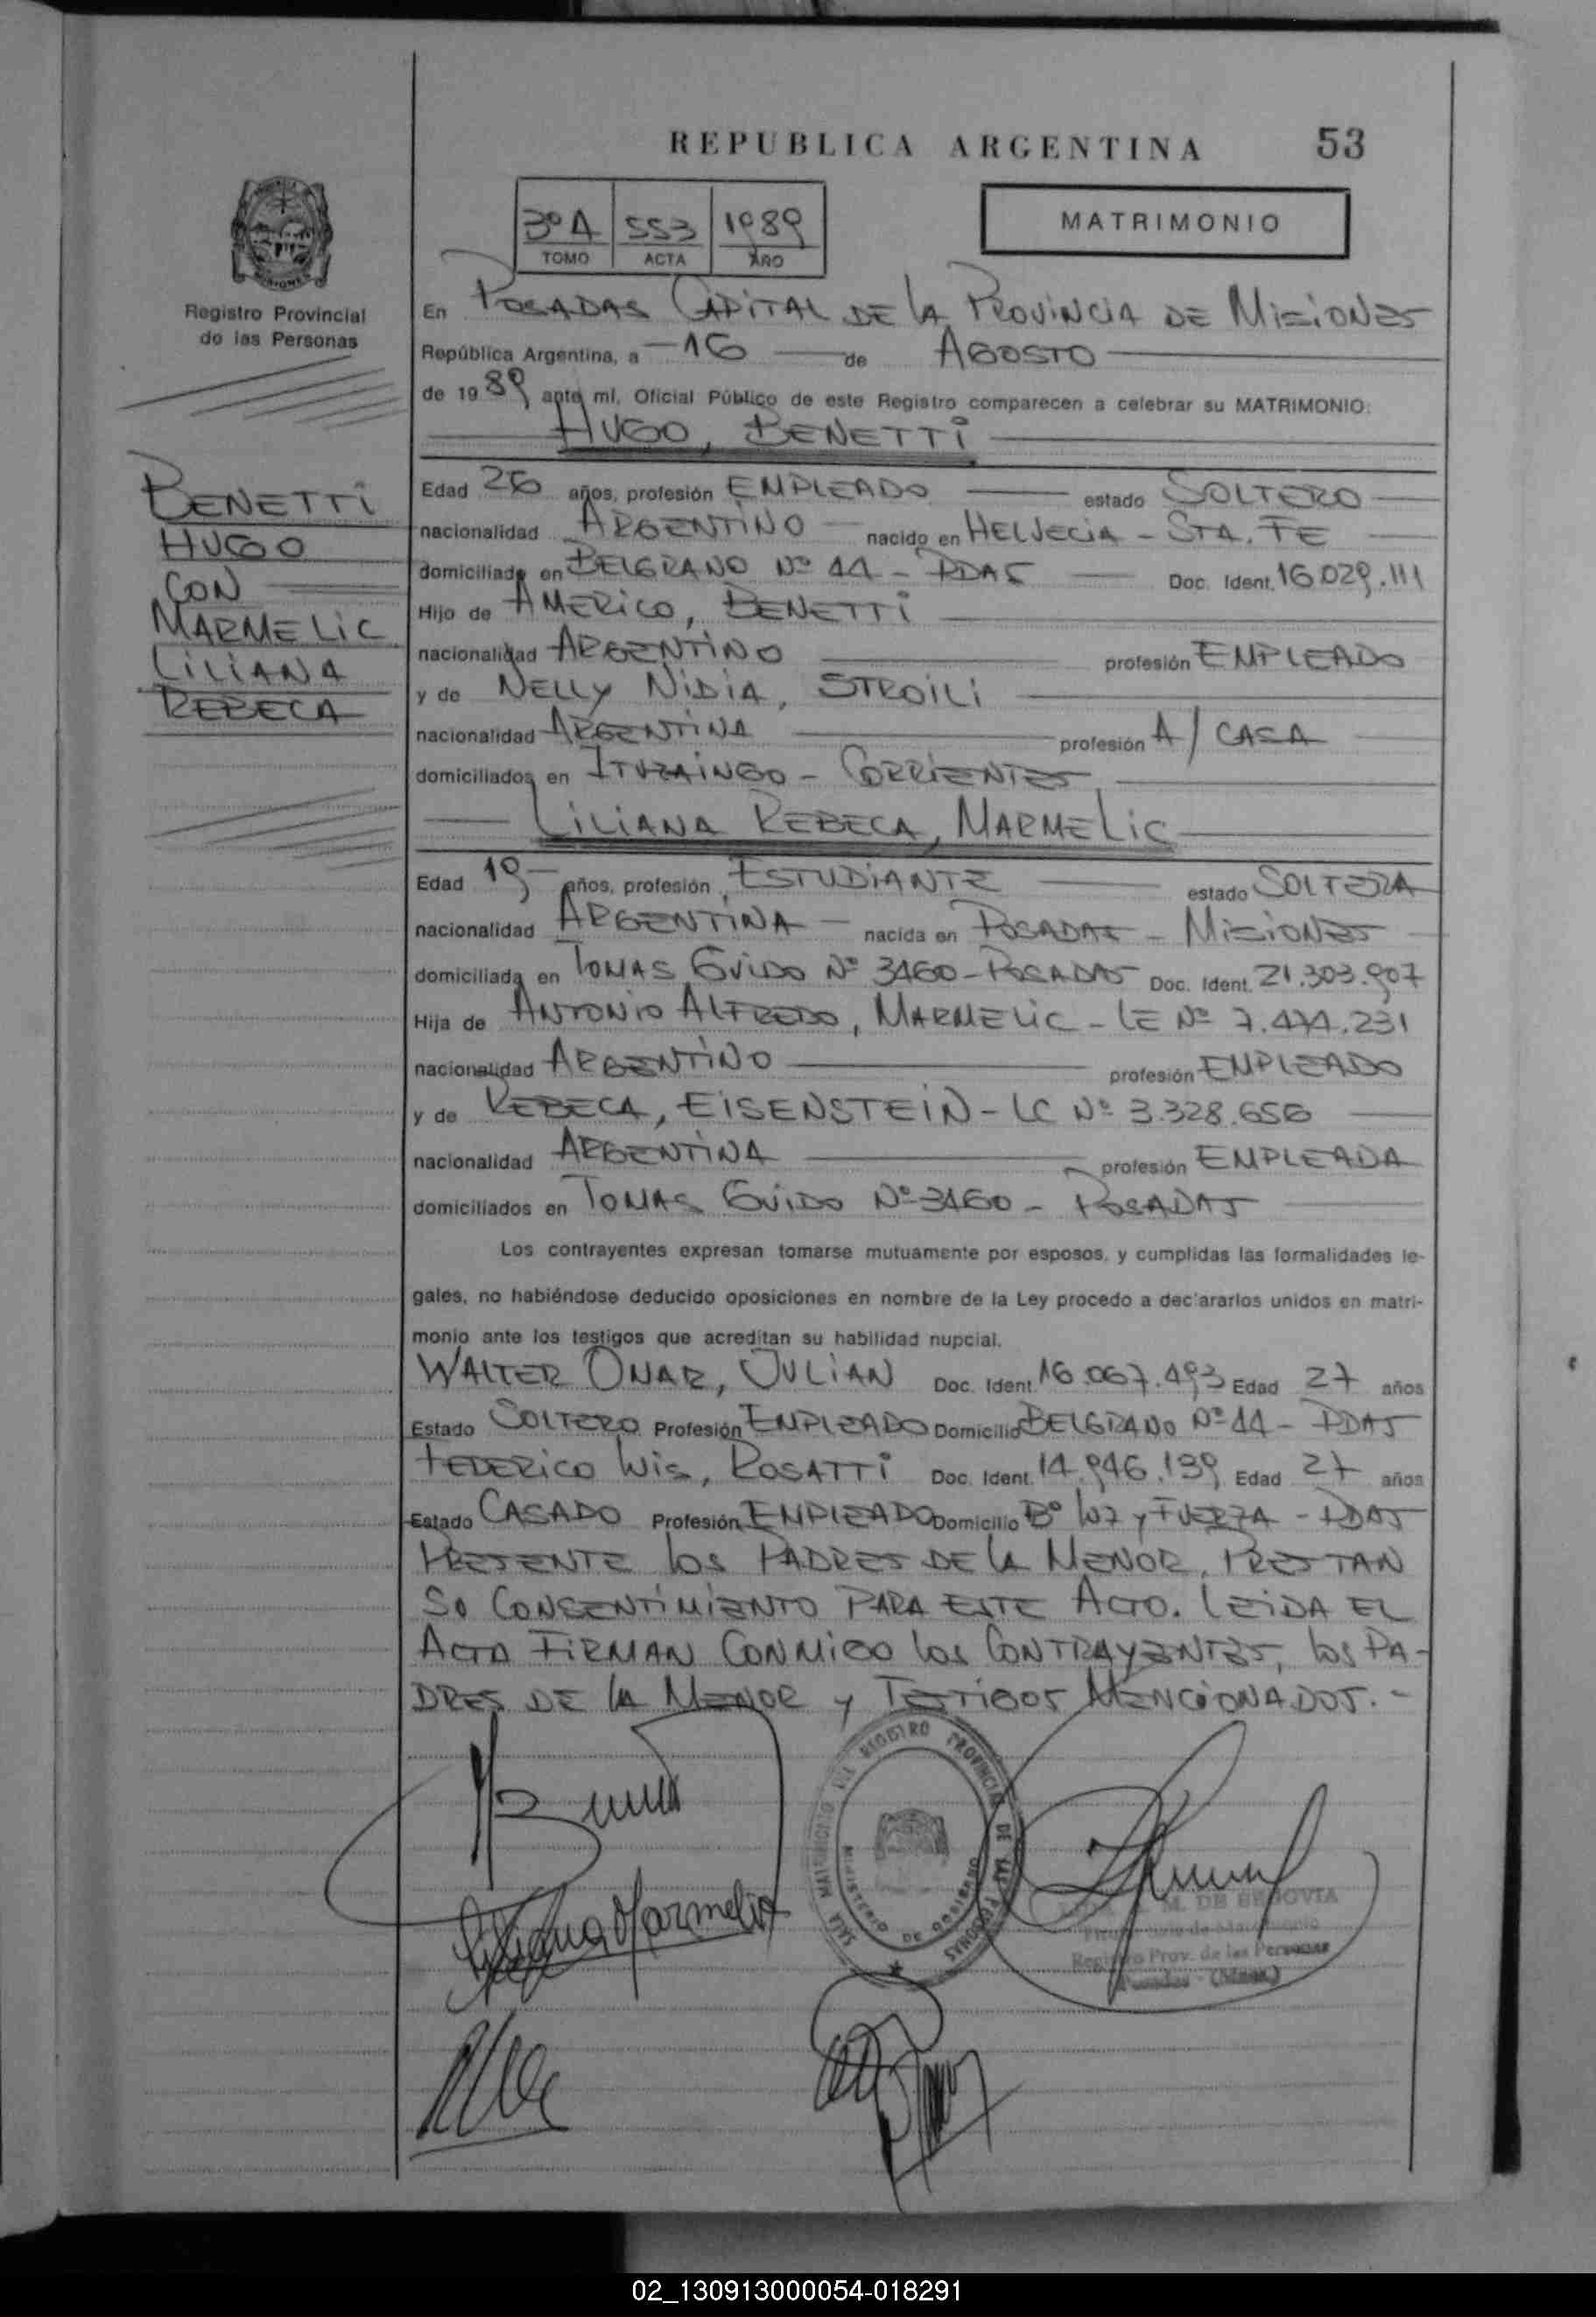 REPUBLICA ARGENTINA 53
3º A 553 1989
TOMO ACTA AÑO
MATRIMONIO
Registro Provincial
de las Personas
BENETTI
HUGO
CON
MARMELIC
LILIANA
REBECA
En POSADAS CAPITAL DE LA PROVINCIA DE MISIONES
República Argentina, a 16 de AGOSTO
de 1989 ante mí, Oficial Público de este Registro comparecen a celebrar su MATRIMONIO:
HUGO, BENETTI
Edad 26 años, profesión EMPLEADO estado SOLTERO
nacionalidad ARGENTINO nacido en HELVECIA - STA. FE
domiciliado en BELGRANO Nº 44 - PDAS Doc. Ident. 16.029.111
Hijo de AMERICO, BENETTI
nacionalidad ARGENTINO profesión EMPLEADO
y de NELLY NIDIA, STROILI
nacionalidad ARGENTINA profesión A/ CASA
domiciliados en ITUZAINGO - CORRIENTES
LILIANA REBECA, MARMELIC
Edad 19 años, profesión ESTUDIANTE estado SOLTERA
nacionalidad ARGENTINA nacida en POSADAS - MISIONES
domiciliada en TOMAS GUIDO Nº 3460 - POSADAS Doc. Ident. 21.303.907
Hija de ANTONIO ALFREDO, MARMELIC - LE Nº 7.474.231
nacionalidad ARGENTINO profesión EMPLEADO
y de REBECA, EISENSTEIN - LC Nº 3.328.656
nacionalidad ARGENTINA profesión EMPLEADA
domiciliados en TOMAS GUIDO Nº 3460 - POSADAS
Los contrayentes expresan tomarse mutuamente por esposos, y cumplidas las formalidades le-
gales, no habiéndose deducido oposiciones en nombre de la Ley procedo a declararlos unidos en matri-
monio ante los testigos que acreditan su habilidad nupcial.
WALTER OMAR, JULIAN Doc. Ident. 16.067.493 Edad 27 años
Estado SOLTERO Profesión EMPLEADO Domicilio BELGRANO Nº 44 - PDAS
FEDERICO LUIS, ROSATTI Doc. Ident. 14.946.139 Edad 27 años
Estado CASADO Profesión EMPLEADO Domicilio Bº LUZ Y FUERZA - PDAS
PRESENTE LOS PADRES DE LA MENOR, PRESTAN
SU CONSENTIMIENTO PARA ESTE ACTO. LEIDA EL
ACTA FIRMAN CONMIGO LOS CONTRAYENTES, LOS PA-
DRES DE LA MENOR Y TESTIGOS MENCIONADOS.-
REGISTRO PROVINCIAL DE LAS PERSONAS
MINISTERIO DE GOBIERNO
Liliana Marmelic
M. DE SEGOVIA
Registro Prov. de las Personas
Posadas - (Mnes.)
02_130913000054-018291